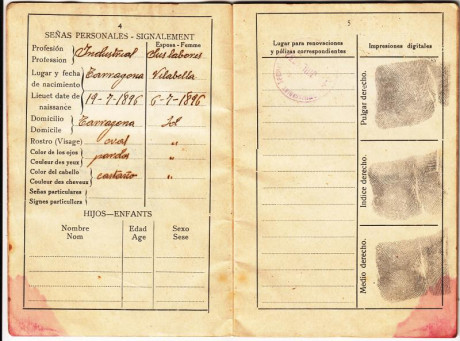 4
SEÑAS PERSONALES - SIGNALEMENT
Esposa - Femme
Profesión Industrial Sus labores
Profession
Lugar y fecha Tarragona Vilabella
de nacimiento
Lieuet date de 19-7-1896 6-7-1896
naissance
Domicilio Tarragona Id
Domicile
Rostro (Visage) oval "
Color de los ojos pardos "
Couleur des yeux
Color del cabello castaño "
Couleur des cheveux
Señas particulares
Signes particullers
HIJOS—ENFANTS
Nombre Edad Sexo
Nom Age Sese
5
Lugar para renovaciones
y pólizas correspondientes
Impresiones digitales
Pulgar derecho.
Indice derecho.
Medio derecho.